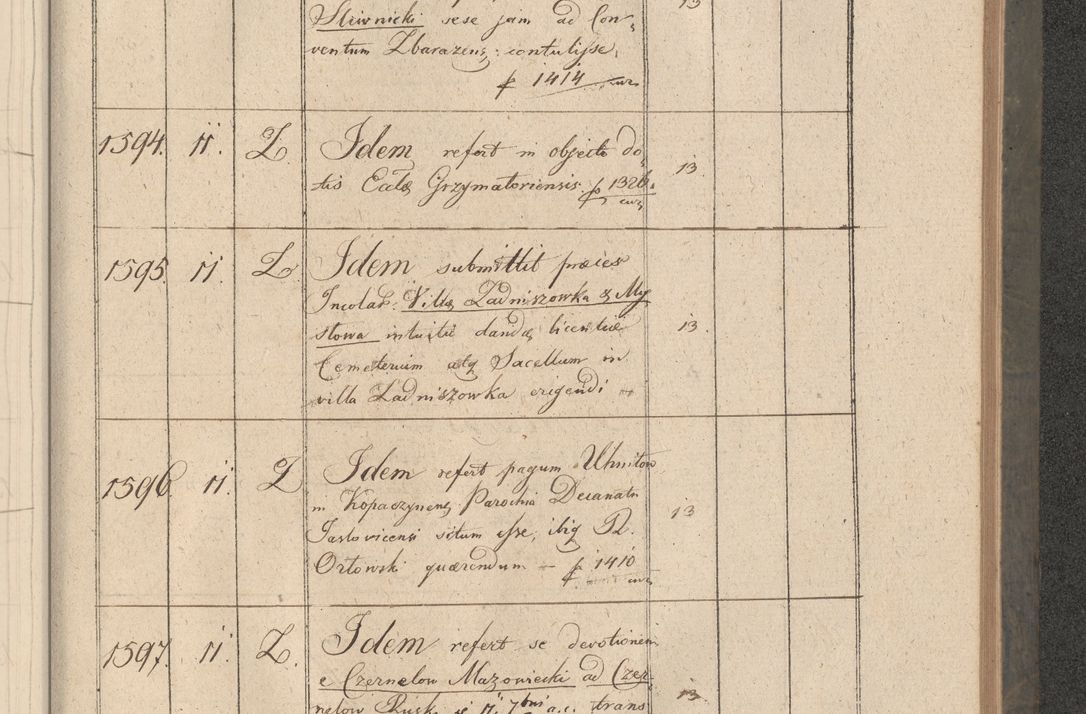 Sliwnicki sese jam ad Con, 13
ventum Zbarazens: contulisse,
f 1414 cur
1594. 11. Z. Idem refert in objecto do,
tis Ecclae Grzymatoriensis. f 1326. 13.
cur
1595. 11. Z. Idem submittit preces
Incolar. Villae Zadniszowka & My
stowa intuitu dandae licentiae 13.
Cemeterium atq Sacellum in
villa Zadniszowka erigendi
1596. 11. Z Idem refert pagum Uhnitow
in Kopaczynens Parochia Decanatu 13
Jastovicensi situm esse, ibiq R.
Ortowski quaerendum – f 1410
cur
1597. 11. Z. Idem refert se devotionem
e Czernelow Mazowiecki ad Czer, 13.
nelow Rusk. 7bris a.c. trans